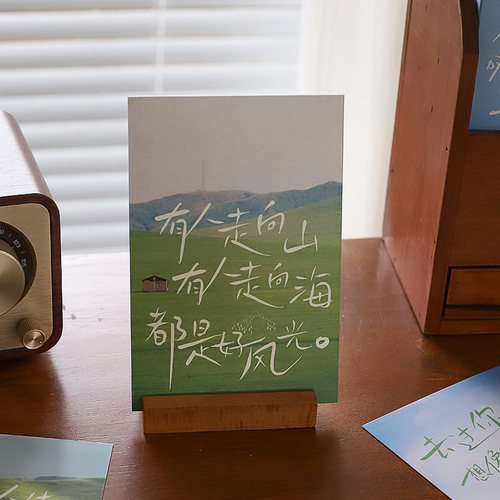 有人走向山
有人走向海
都是好风光。
去过你
想你